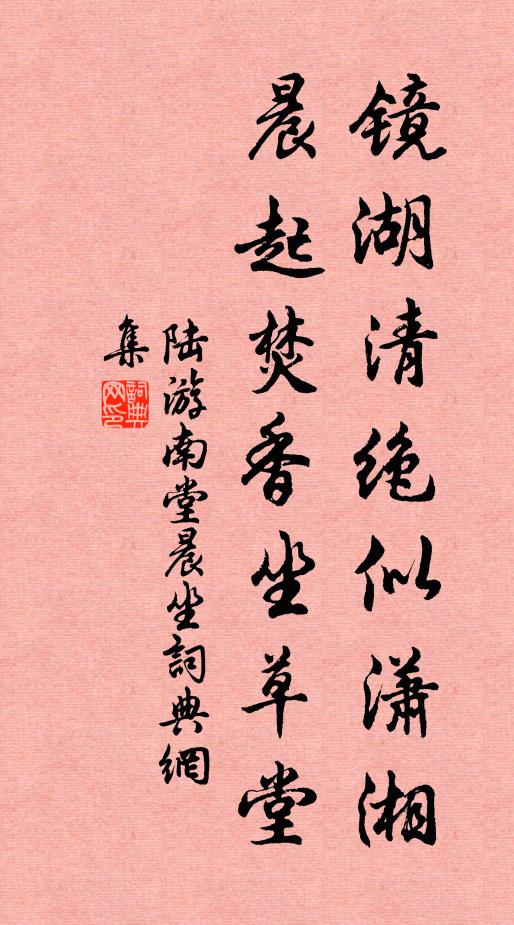 镜湖清绝似潇湘
晨起焚香坐草堂
陆游南堂晨坐詞典網
集
詞典
网印